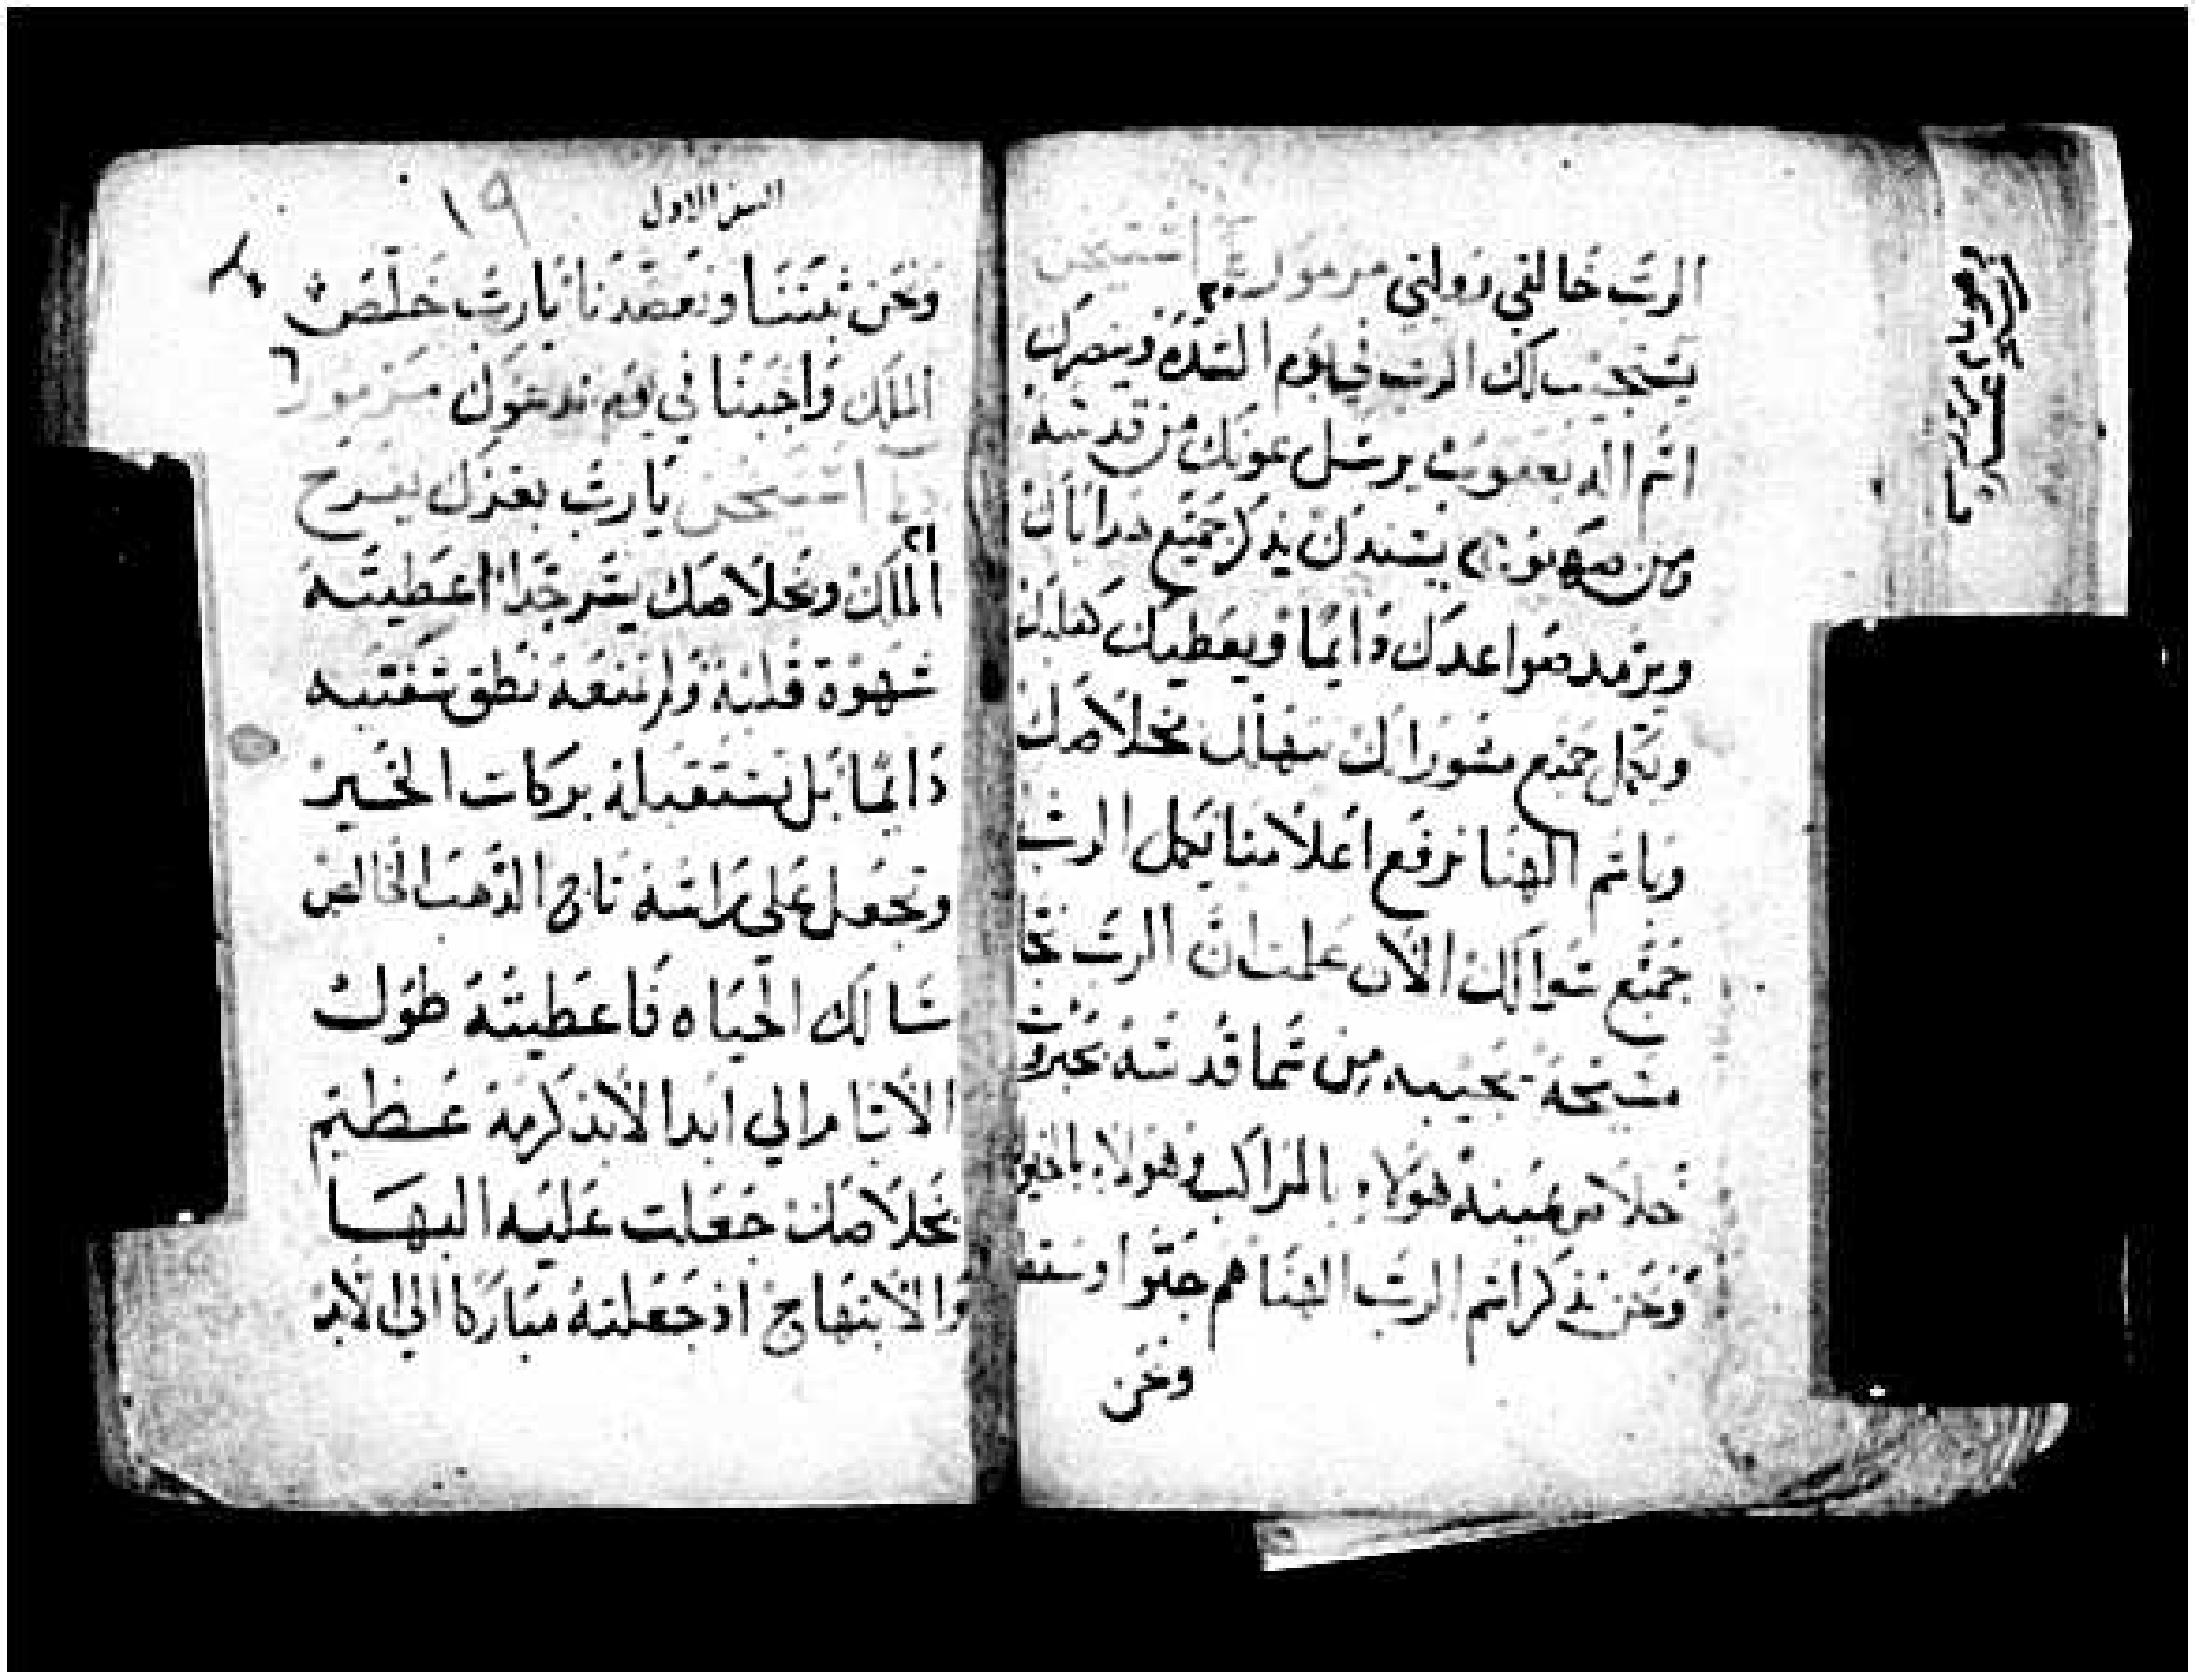 الرب خالقي وولني مزمور
٢٠
يستجيب لك الرب في يوم الشدة وينصرك
اسم اله يعقوب يرسل عونك من قدسه
ومن صهيون يسندك يذكر جميع
صواعدك دايما ويعطيك كقلبك
ويكمل جميع مشوراتك نتهلل بخلاصك
وباسم الهنا نرفع اعلامنا يكمل الرب
جميع سوالك الان علمت ان الرب
مسيحه يجيبه من سما قدسه بجبروت
خلاص يمينه هولاء بالمراكب وهولاء بالخيل
ونحن نذكر اسم الرب الهنا هم
ونحن
السفر الاول
١٩
ونحن يارب خلص
الملك واجبنا في يوم ندعوك مزمور
يارب بعزك يفرح
٢١
الملك وبخلاصك يسر جدا اعطيته
شهوة قلبه ولم تمنعه نطق شفتيه
دايما بل تستقبله بركات الخير
وتجعل علي راسه تاج الذهب الخالص
سالك الحياه فاعطيته طول
الايام الي ابد الابد كريم عظيم
بخلاصك جعلت عليه البها
والابتهاج اذ جعلته مباركا الي الابد